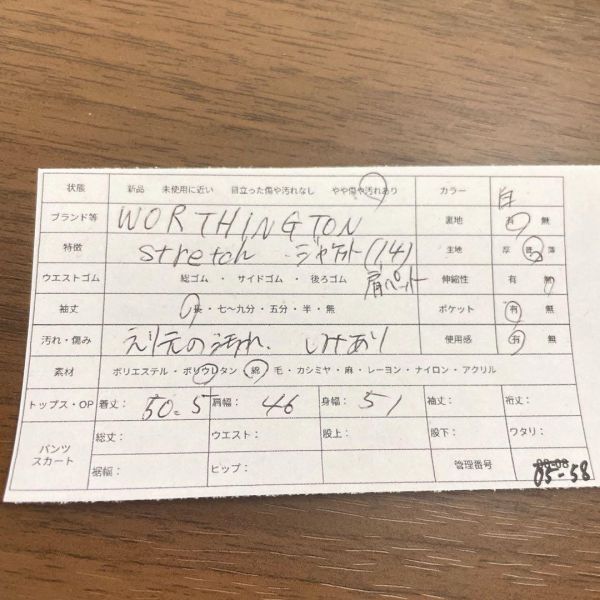 状態 新品 未使用に近い 目立った傷や汚れなし やや傷や汚れあり カラー 白
ブランド等 WORTHINGTON 裏地 有 無
特徴 stretch ジャケット(14) 生地 厚 普 薄
ウエストゴム 総ゴム ・ サイドゴム ・ 後ろゴム 肩パット 伸縮性 有 無
袖丈 長 ・ 七〜九分 ・ 五分 ・ 半 ・ 無 ポケット 有 無
汚れ・傷み えり元の汚れ、しみあり 使用感 有 無
素材 ポリエステル ・ ポリウレタン 綿 毛 ・ カシミヤ ・ 麻 ・ レーヨン ・ ナイロン ・ アクリル
トップス・OP 着丈: 50.5 肩幅: 46 身幅: 51 袖丈: 裄丈:
パンツ 総丈: ウエスト: 股上: 股下: ワタリ:
スカート 裾幅: ヒップ: 管理番号 05-58